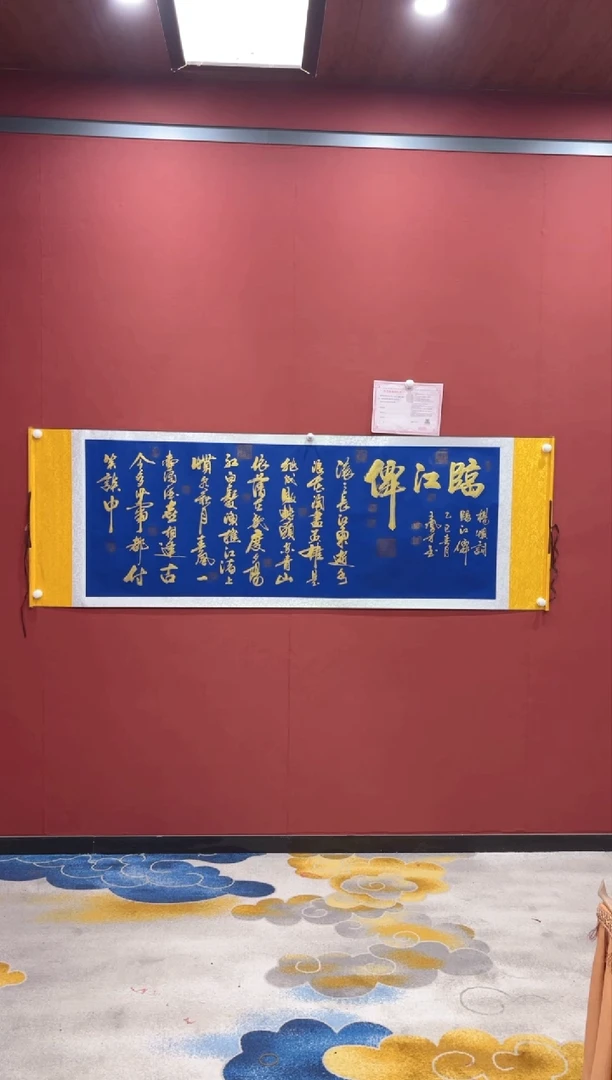 臨江僊
楊慎詞
臨江僊
乙巳春月
滚〻長江東逝水
浪花淘盡英雄是
非成敗轉頭空青山
依舊在幾度夕陽
紅白髮漁樵江渚上
慣看秋月春風一
壺濁酒喜相逢古
今多少事都付
笑談中